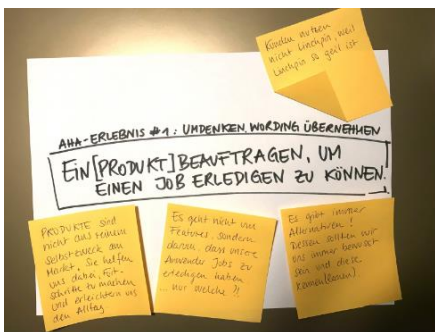 Kunden nutzen
nicht Linchpin, weil
Linchpin so geil ist
AHA-ERLEBNIS #1: UMDENKEN, WORDING ÜBERNEHMEN
EIN [PRODUKT] BEAUFTRAGEN, UM
EINEN JOB ERLEDIGEN ZU KÖNNEN.
PRODUKTE sind
nicht aus reinem
Selbstzweck am
Markt. Sie helfen
uns dabei, Fort-
schritte zu machen
und erleichtern uns
den Alltag
Es geht nicht um
Features, sondern
darum, dass unsere
Anwender Jobs zu
erledigen haben
... nur welche?!
Es gibt immer
Alternativen!
Dessen sollten wir
uns immer bewusst
sein und diese
kennen(lernen).